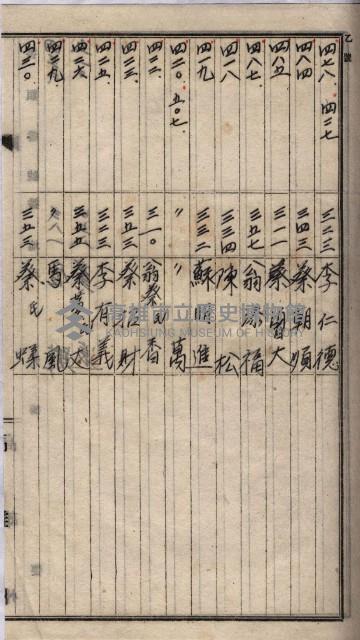 乙號
四七八. 四二七 三二三 李仁德
四八四 三四三 蔡朝順
四八五. 三一一 蔡曾大
四八七. 三五七 翁添福
四一八 三三四 陳松
四一九 三三二 蘇明進
四二〇. 五〇七. 〃 〃 萬
四二二. 三一〇. 翁蔡氏香
四二三. 三五三 蔡旺財
四二五. 三二三 李有義
四二六. 三五三
四二九. 馬風
四三〇. 三五三 蔡氏
高雄市立歷史博物館
KAOHSIUNG MUSEUM OF HISTORY